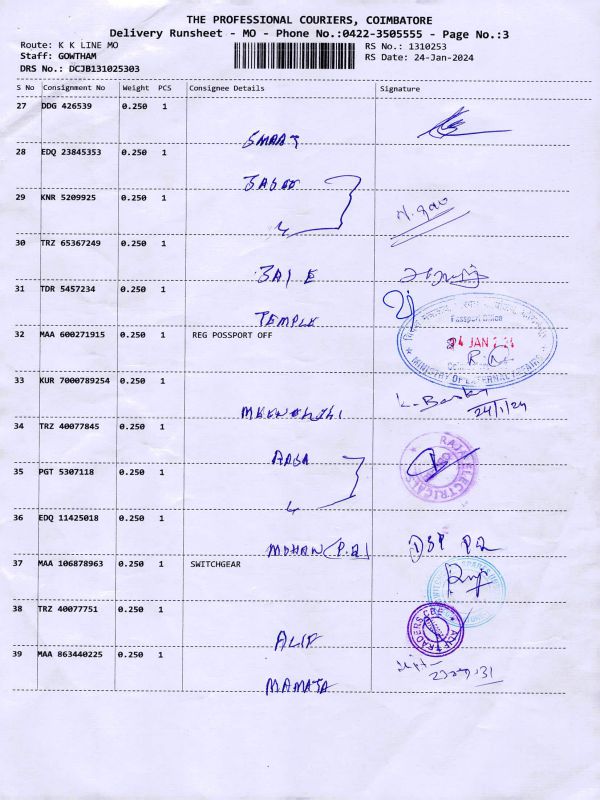 THE PROFESSIONAL COURIERS, COIMBATORE
Delivery Runsheet - MO - Phone No.:0422-3505555 - Page No.:3
Route: K K LINE MO
RS No.: 1310253
Staff: GOWTHAM
RS Date: 24-Jan-2024
DRS No.: DCJB131025303
S No Consignment No Weight PCS Consignee Details Signature
27 DDG 426539 0.250 1
SMAAT
28 EDQ 23845353 0.250 1
29 KNR 5209925 0.250 1
30 TRZ 65367249 0.250 1
31 TDR 5457234 0.250 1
TEMPLE
Passport Office
24 JAN
MINISTRY OF EXTERNAL AFFAIRS
32 MAA 600271915 0.250 1 REG POSSPORT OFF
33 KUR 7000789254 0.250 1
24/1/24
34 TRZ 40077845 0.250 1
RAJA ELECTRICALS
35 PGT 5307118 0.250 1
36 EDQ 11425018 0.250 1
MOHAN
37 MAA 106878963 0.250 1 SWITCHGEAR
38 TRZ 40077751 0.250 1
ALIF
ALIF TRADERS CBE
39 MAA 863440225 0.250 1
MAMATA